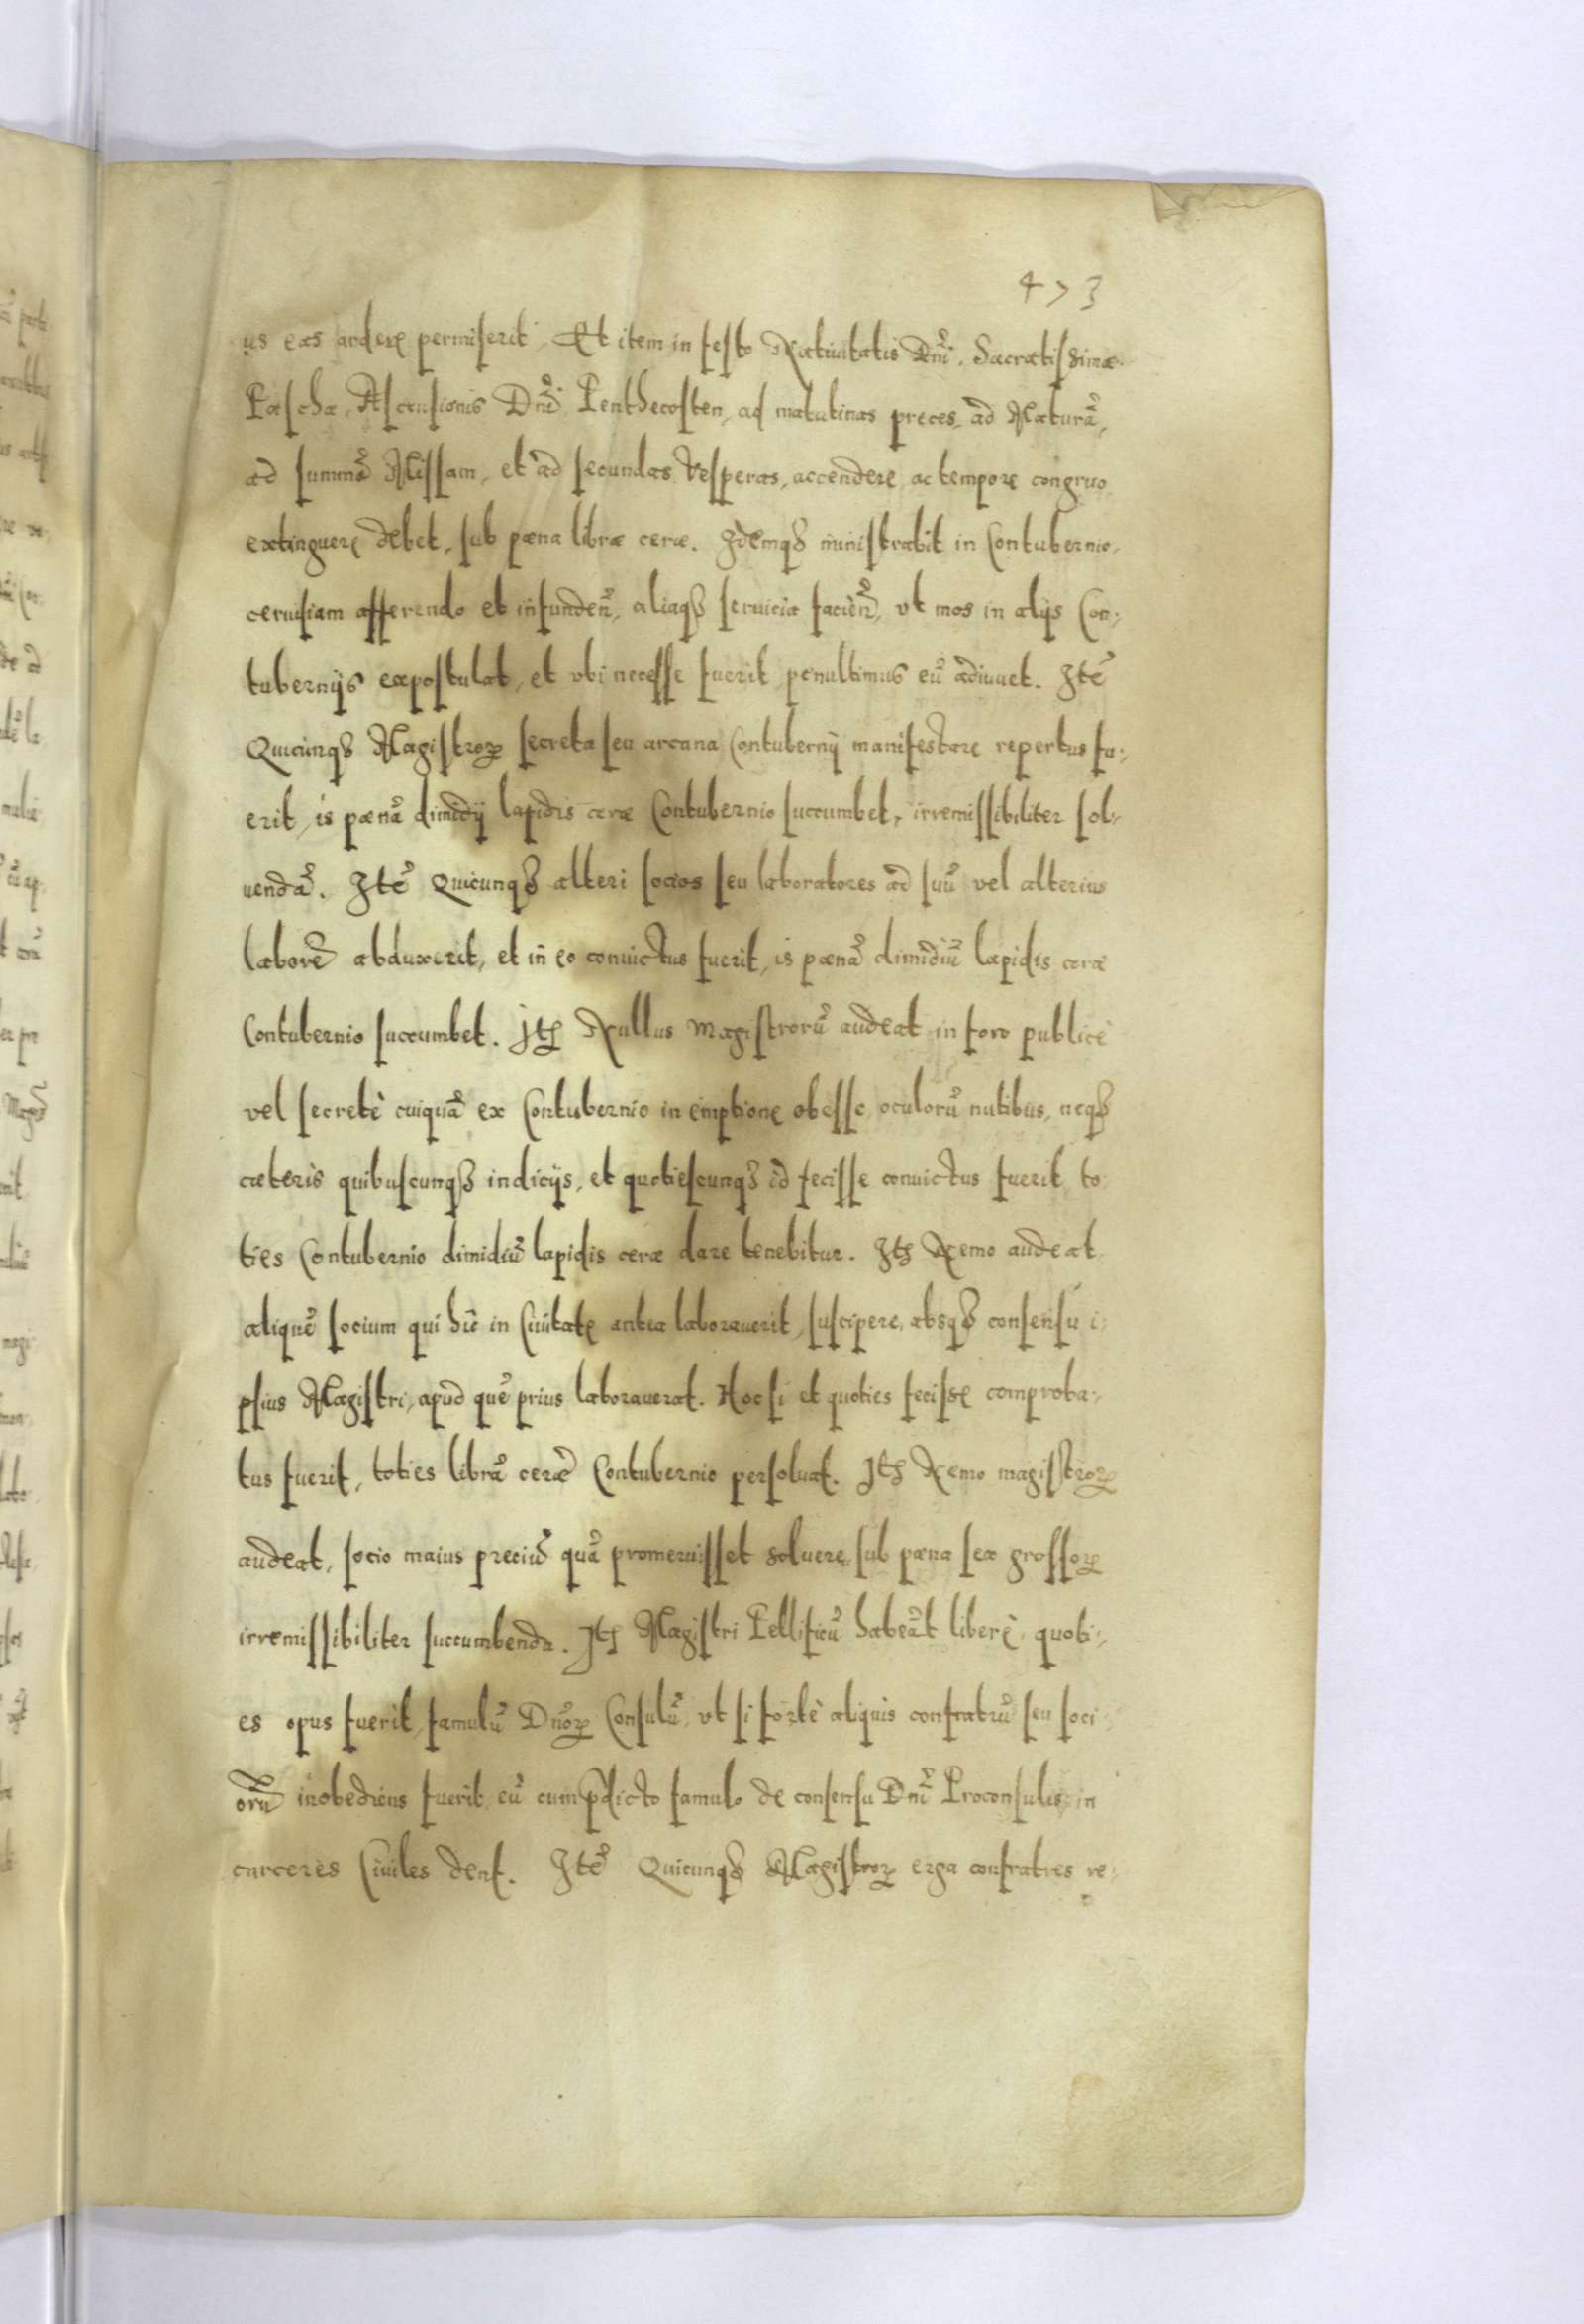 473
us eas ardere permiserit. Et item in festo Natiuitatis Dni. Sacratissimæ
Paschæ, Ascensionis Dni, Penthecosten, ad matutinas preces, ad Maturā,
ad summā Missam, et ad secundas Vesperas, accendere ac tempore congruo
extinguere debet, sub pæna libræ ceræ. Idemqȝ ministrabit in Contubernio,
ceruisiam afferendo et infundeñ, aliaqȝ seruicia facieñ, vt mos in alijs Con:
tubernijs expostulat, et vbi necesse fuerit penultimus eū adiuuet. Itē
Quicunqȝ Magistroꝝ secreta seu arcana Contubernij manifestare repertus fu:
erit, is pænā dimidij lapidis ceræ Contubernio succumbet, irremissibiliter sol:
uendā. Itē Quicunqȝ alteri socios seu laboratores ad suū vel alterius
laborē abduxerit, et in eo conuictus fuerit, is pænā dimidiū lapidis ceræ
Contubernio succumbet. Itꝫ Nullus Magistrorū audeat in foro publicè
vel secretè cuiquā ex Contubernio in emptione obesse, oculorū nutibus, neqȝ
cæteris quibuscunqȝ indicijs, et quotiescunqȝ id fecisse conuictus fuerit, to:
ties Contubernio dimidiū lapidis ceræ dare tenebitur. Itꝫ Nemo audeat
aliquē socium qui hîc in Ciuitate antea laborauerit, suscipere, absqȝ consensu i:
psius Magistri, apud quē prius laborauerat. Hoc si et quoties fecisse comproba:
tus fuerit, toties librā ceræ Contubernio persoluat. Itꝫ Nemo magistroꝝ
audeat, socio maius preciū quā promeruisset soluere, sub pæna sex grossoꝝ
irremissibiliter succumbenda. Itꝫ Magistri Pellificū habeāt liberè, quoti:
es opus fuerit, famulū Dnoꝝ Consulū, vt si fortè aliquis confratrū seu soci:
orū inobediens fuerit, eū cum p̄dicto famulo de consensu Dni Proconsulis, in
carceres Ciuiles dent. Itē Quicunqȝ Magistroꝝ erga confratres re: